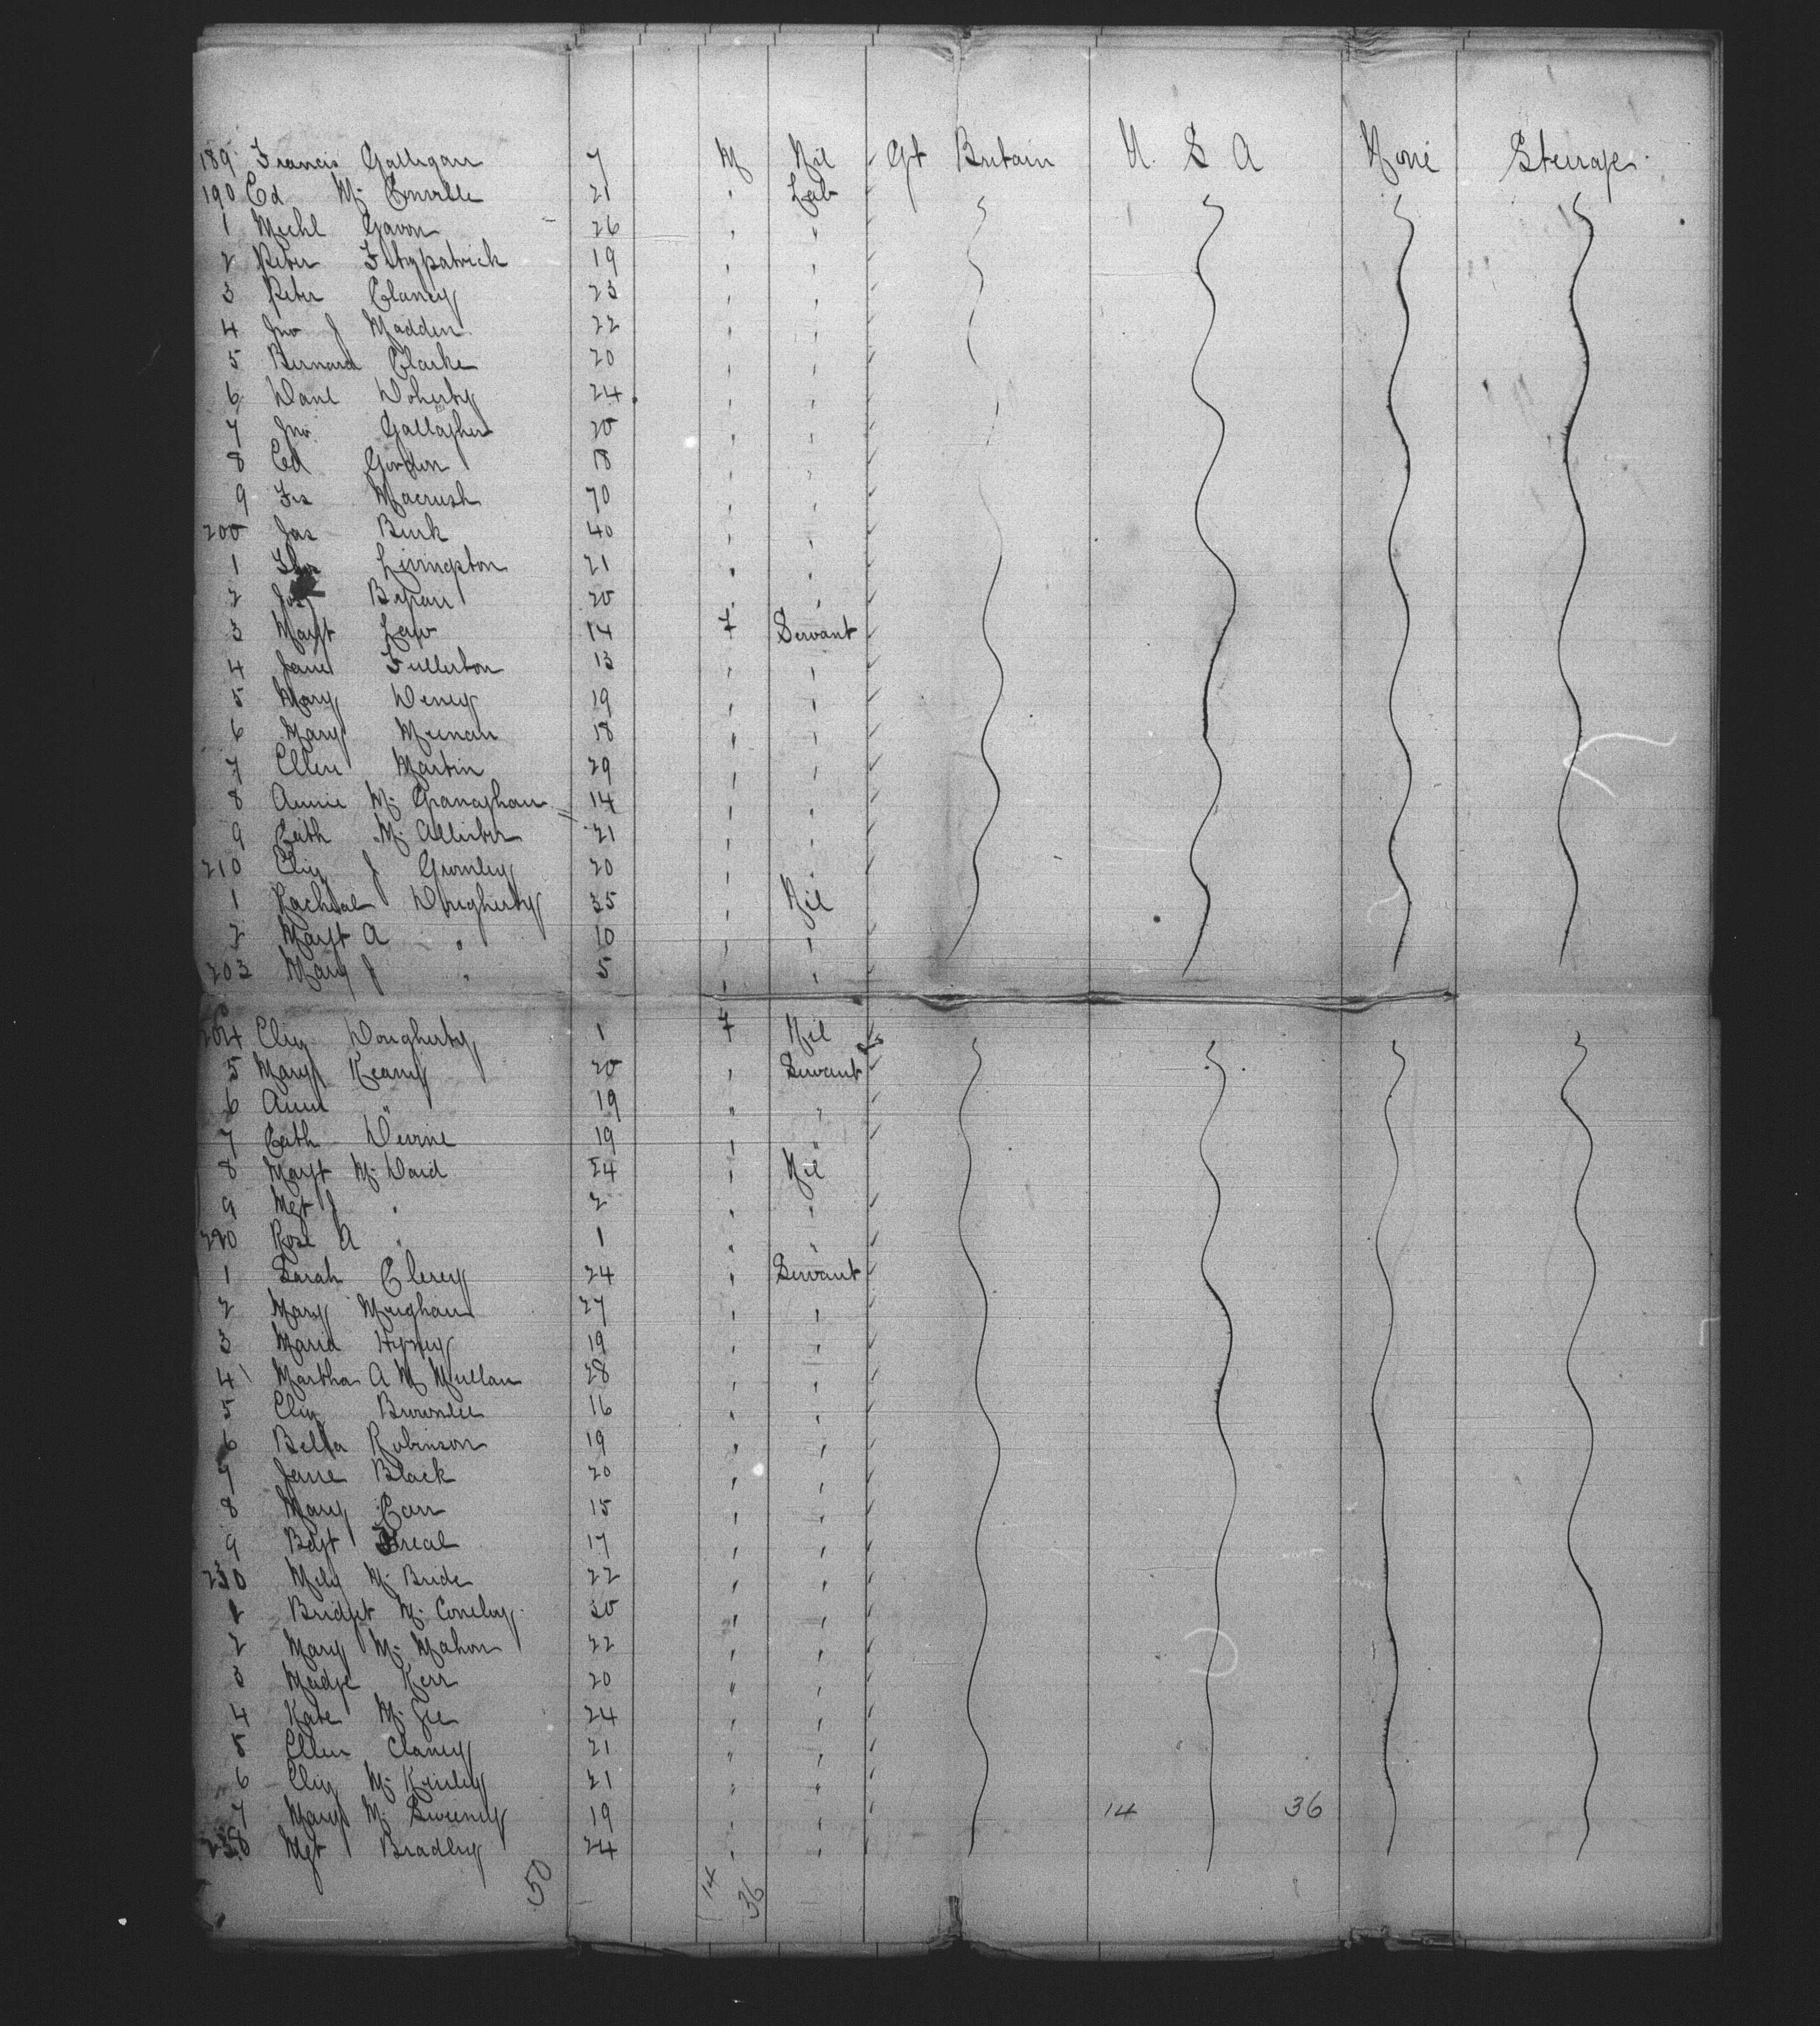 189 Francis Galligan 7 M Nil Gt Britain U. S A None Steerage
190 Ed Mc Conville 21 " Lab
1 Michl Gavon 26 " "
2 Peter Fitzpatrick 19 " "
3 Peter Clancy 23 " "
4 Jno J Madden 22 " "
5 Bernard Clarke 20 " "
6 Danl Doherty 24 " "
7 Jno Gallagher 20 " "
8 Ed Gordon 18 " "
9 Fs 70 " "
200 Jas Burk 40 " "
1 Thos Livingston 21 " "
2 Jos 20 " "
3 Margt Law 14 F Servant
4 Jane Fullerton 13 " "
5 Mary Deney 19 " "
6 Mary Meenan 18 " "
7 Ellen Martin 29 " "
8 Annie Mc Granaghan 14 " "
9 Cath Mc Allister 21 " "
210 Eliz J Gormley 20 " "
1 Racheal Dougherty 35 " Nil
2 Margt A " 10 " "
203 Mary J " 5 " "
204 Eliz Dougherty 1 F Nil
5 Mary Keany 20 " Servant
6 Anne " 19 " "
7 Cath Devine 19 " "
8 Margt Mc Daid 24 " Nil
9 Mgt J " 2 " "
220 Rose A " 1 " "
1 Sarah Clerey 24 " Servant
2 Mary Meighan 27 " "
3 Maria 19 " "
4 Martha A Mc Mullan 28 " "
5 Eliz Brownlee 16 " "
6 Bella Robinson 19 " "
7 Jane Black 20 " "
8 Mary Carr 15 " "
9 Bdgt Freal 17 " "
230 Mc Bride 22 " "
1 Bridget Mc Conelog 30 " "
2 Mary Mc Mahon 22 " "
3 Madge Kerr 20 " "
4 Kate Mc Gee 24 " "
5 Ellen Clancy 21 " "
6 Eliz Mc Kinley 21 " "
7 Mary Mc Sweeney 19 " " 14 36
238 Mgt Bradley 24 " "
50 14 36